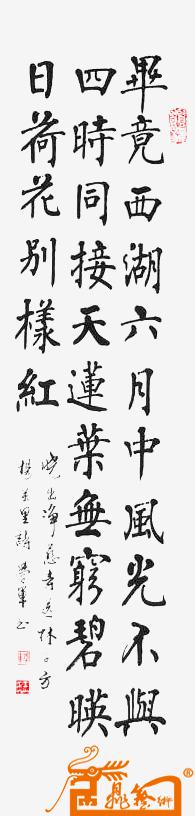 畢竟西湖六月中風光不與
四時同接天蓮葉無窮碧映
日荷花別樣紅
曉出淨慈寺送林子方
楊萬里詩